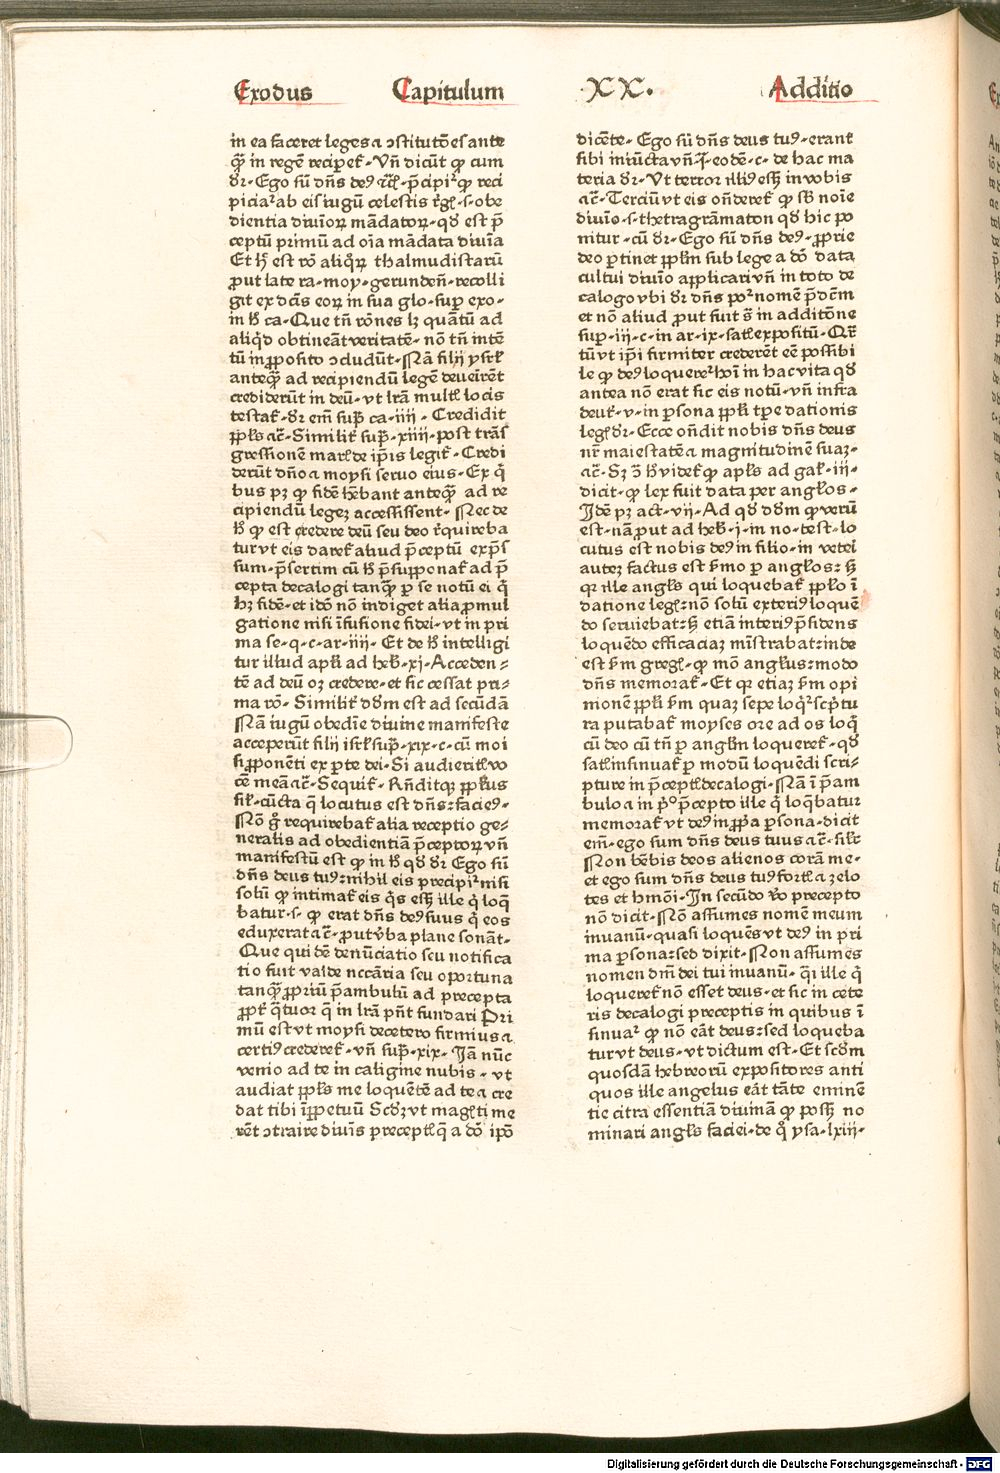 Exodus Capitulum XX. Additio
in ea faceret leges ⁊ ↄstitutõeſ ante
q̃ꝫ in regẽ recip̱et᷑. Vñ dicũt ꝙ cum
dr̃. Ego sũ dñs deꝰ ⁊cͣ. p̃cipit᷑ ꝙ reci
piciat᷑ ab eiſ iugũ celestis r̃gꝭ. s. obe
dientia diuinoꝝ mãdatoꝝ. qđ est p̃
ceptũ primũ ad oĩa mãdata diuĩa
Et h̃ est rõ aliq̃ꝝ thalmudistarũ
ꝓut late ra. moy. gerundeñ. recolli
git ex dc̃is eoꝝ in sua glo. sup̱ exo.
in h̃ ca. Que tñ rõnes lꝫ quãtũ ad
aliq̃d obtineãt veritatẽ. nõ tñ intẽ
tũ in ꝓposito ↄcludũt. Nã filij ysrł
anteq̃ꝫ ad recipiendũ legẽ deueĩrẽt
crediderũt in deũ. vt lrã multꝭ locis
testat᷑. dr̃ em̃ sup̃ ca. iiii. Credidit
ꝓpl̃s ⁊cͣ. Similit᷑ sup̃. xiiii. post trãs
gressionẽ marꝭ de ip̃is legit᷑. Credi
derũt dño ⁊ moysi seruo eius. Ex q̃
bus pꝫ ꝙ fidẽ h̃ebant anteq̃ꝫ ad re
cipiendũ legeꝫ accessissent. Nec de
h̃ ꝙ est credere deũ seu deo r̃quireba
tur vt eis daret᷑ aliud p̃ceptũ exp̃ſ
sum. p̃sertim cũ h̃ p̃supponat᷑ ad p̃
cepta decalogi tanq̃ꝫ p̱ se notũ ei q̃
hꝫ fidẽ. et idõ nõ indiget alia ꝓmul
gatione nisi ĩfusione fidei. vt in pri
ma se. q. c. ar. iiii. Et de h̃ intelligi
tur illud apl̃i ad heb̃. xj. Acceden⸗
tẽ ad deũ oꝫ credere. et sic cessat pri⸗
ma rõ. Similit᷑ dõm est ad secũdã
Nã iugũ obedĩe diuine manifeste
acceperũt filij isrł sup̃. xix. c. cũ moi
si ꝓponẽti ex p̱te dei. Si audieritꝭ vo
cẽ meã ⁊cͣ. Sequit᷑. Rñditqꝫ ꝓpl̃us
sil̃. cũcta q̃ locutus est dñs: faciemꝰ.
Nõ g̃ requirebat᷑ alia receptio ge⸗
neralis ad obedientiã p̃ceptoꝝ vñ
manifestũ est ꝙ in h̃ qđ dr̃ Ego sũ
dñs deus tuꝰ: nihil eis precipit᷑ nisi
solũ ꝙ intimat᷑ eis q̃s esset ille q̃ loq̃
batur. s. ꝙ erat dñs deꝰ suus q̃ eos
eduxerat ⁊cͣ. ꝓut v̾ba plane sonãt.
Que quidẽ denũciatio seu notifica
tio fuit valde nccãria seu oportuna
tanq̃ꝫ ꝓpriũ p̃ambulũ ad precepta
ꝓpt᷑ q̃tuor q̃ in lrã pñt fundari Pri
mũ est vt moysi decetero firmius ⁊
certiꝰ crederet᷑. vñ sup̃. xix. Iã nũc
venio ad te in caligine nubis. vt
audiat ꝓpl̃s me loquẽtẽ ad te ⁊ cre
dat tibi ĩꝑpetuũ Scđꝫ vt magꝭ time
rẽt ↄtraire diuĩs preceptꝭ q̃ a dõ ip̃o
dicẽte. Ego sũ dñs deus tuꝰ. erant
sibi iniũcta vñ. J. eodẽ. c. de hac ma
teria dr̃. Vt terror illiꝰ esset in vobis
⁊cͣ. Terciũ vt eis oñderet᷑ ꝙ sb̃ noĩe
diuĩo. s. thetragrãmaton qđ hic po
nitur. cũ dr̃. Ego sũ dñs deꝰ. ꝓprie
deo p̱tinet ꝓpl̃m sub lege a dõ data
cultui diuĩo applicari vñ in toto de
calogo vbi dr̃ dñs poᷣ nomẽ p̃dc̃m
et nõ aliud ꝓut fuit s̃ in additõne
sup̱. iii. c. in ar. ix. satꝭ expositũ. Qr̃
tũ vt ip̃i firmiter crederẽt eẽ possibi
le ꝙ deꝰ loqueret᷑ hoĩ in hac vita qđ
antea nõ erat sic eis notũ. vñ infra
deut᷑. v. in p̱sona ꝓpl̃i tp̱e dationis
legꝭ dr̃. Ecce oñdit nobis dñs deus
nr̃ maiestatẽ ⁊ magnitudinẽ suaꝫ.
⁊cͣ. Sꝫ ↄ̃ h̃ videt᷑ ꝙ apl̃s ad gal̃. iii.
dicit. ꝙ lex fuit data per angl̃os.
Idẽ pꝫ act. vii. Ad qđ dõm ꝙ verũ
est. nã ꝓut ad heb̃. j. in no. test. lo
cutus est nobis deꝰ in filio. in veteri
auteꝫ factus est s̃mo p̱ angl̃os: sꝫ
qꝛ ille angl̃s qui loquebat᷑ ꝓpl̃o ĩ
datione legꝭ: nõ solũ exteriꝰ loquẽ
do seruiebat: sꝫ etiã interiꝰ p̃sidens
loquẽdo efficaciaꝫ mĩstrabat: inde
est s̃m gregꝭ. ꝙ mõ angl̃us: modo
dñs memorat᷑. Et qꝛ etiaꝫ s̃m opi
nionẽ ꝓpl̃i s̃m quaꝫ sepe loqt᷑ scp̃tu
ra putabat᷑ moyses ore ad os loq̃
cũ deo cũ tñ p̱ angl̃m loqueret᷑. qđ
satꝭ insinuat᷑ p̱ modũ loquẽdi scri⸗
pture in p̃ceptꝭ decalogi. Nã ĩ p̃am
bulo ⁊ in pᷣo p̃cepto ille q̃ loq̃batur
memorat᷑ vt deꝰ in ꝓp̃a p̱sona. dicit
em̃. ego sum dñs deus tuus ⁊cͣ. sil̃r
Non h̃ebis deos alienos corã me.
et ego sum dñs deus tuꝰ fortꝭ ⁊ zelo
tes et hmõi. In secũdo v̾o precepto
nõ dicit. Nõ assumes nomẽ meum
inuanũ. quasi loquẽs vt deꝰ in pri
ma p̱sona: sed dixit. Non assumẽs
nomen dñi dei tui inuanũ. q̃i ille q̃
loqueret᷑ nõ esset deus. et sic in cete
ris decalogi preceptis in quibus ĩ
sinuat᷑ ꝙ nõ eãt deus: sed loqueba
tur vt deus. vt dictum est. Et scđm
quosdã hebreorũ expositores anti
quos ille angelus eãt tãte eminẽ
tie citra essentiã diuinã ꝙ posset no
minari angl̃s faciei. de q̊ ysa. lxiii.
Digitalisierung gefördert durch die Deutsche Forschungsgemeinschaft - DFG